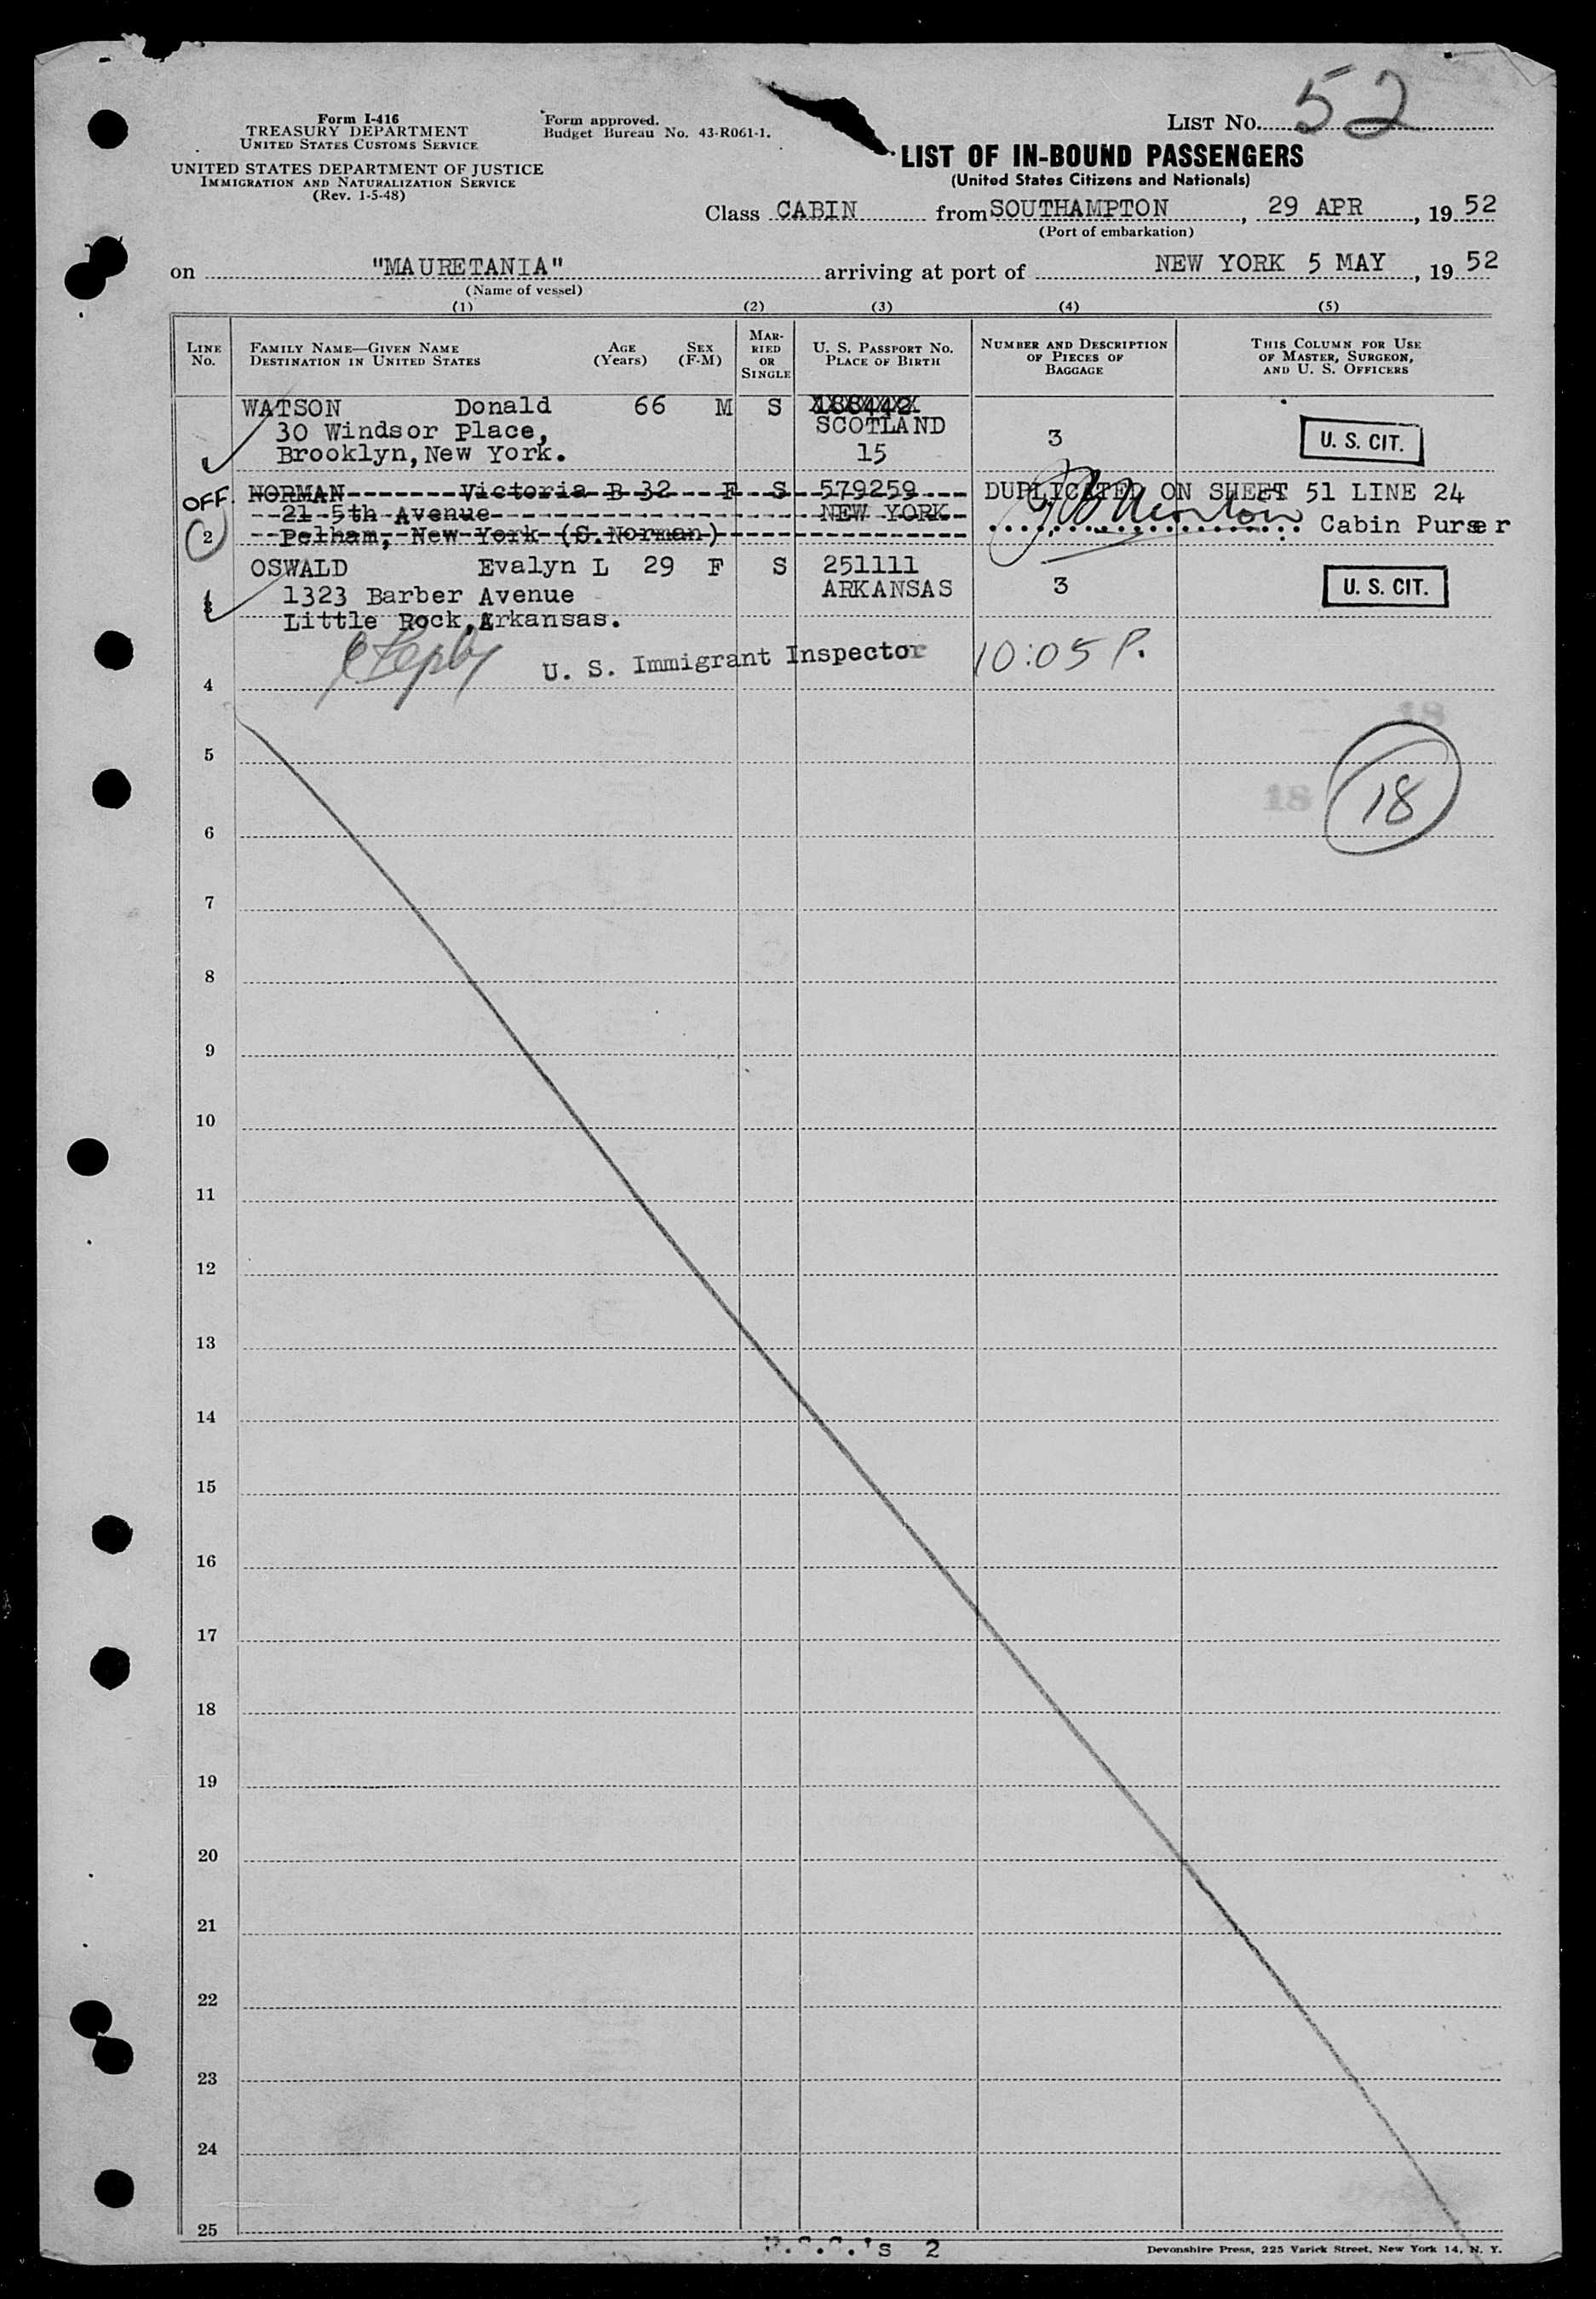 52
Form I-416
TREASURY DEPARTMENT
UNITED STATES CUSTOMS SERVICE
UNITED STATES DEPARTMENT OF JUSTICE
IMMIGRATION AND NATURALIZATION SERVICE
(Rev. 1-5-48)
Form approved.
Budget Bureau No. 43-R061-1.
LIST NO.
LIST OF IN-BOUND PASSENGERS
(United States Citizens and Nationals)
Class CABIN from SOUTHAMPTON, 29 APR, 1952
(Port of embarkation)
on "MAURETANIA" arriving at port of NEW YORK 5 MAY, 1952
(Name of vessel)
(1) (2) (3) (4) (5)
LINE NO.
FAMILY NAME—GIVEN NAME
DESTINATION IN UNITED STATES
AGE (Years)
SEX (F-M)
MARRIED OR SINGLE
U. S. PASSPORT NO.
PLACE OF BIRTH
NUMBER AND DESCRIPTION OF PIECES OF BAGGAGE
THIS COLUMN FOR USE OF MASTER, SURGEON, AND U. S. OFFICERS
WATSON Donald 66 M S
30 Windsor Place, SCOTLAND 3 U. S. CIT.
Brooklyn, New York. 15
OFF. NORMAN Victoria B 32 F S 579259 DUPLICATED ON SHEET 51 LINE 24
21 5th Avenue NEW YORK Cabin Purser
2 Pelham, New York (S.Norman)
OSWALD Evalyn L 29 F S 251111
1323 Barber Avenue ARKANSAS 3 U. S. CIT.
Little Rock, Arkansas.
U. S. Immigrant Inspector 10:05 P.
4
18
5
18 18
6
7
8
9
10
11
12
13
14
15
16
17
18
19
20
21
22
23
24
25
's 2
Devonshire Press, 225 Varick Street, New York 14, N. Y.